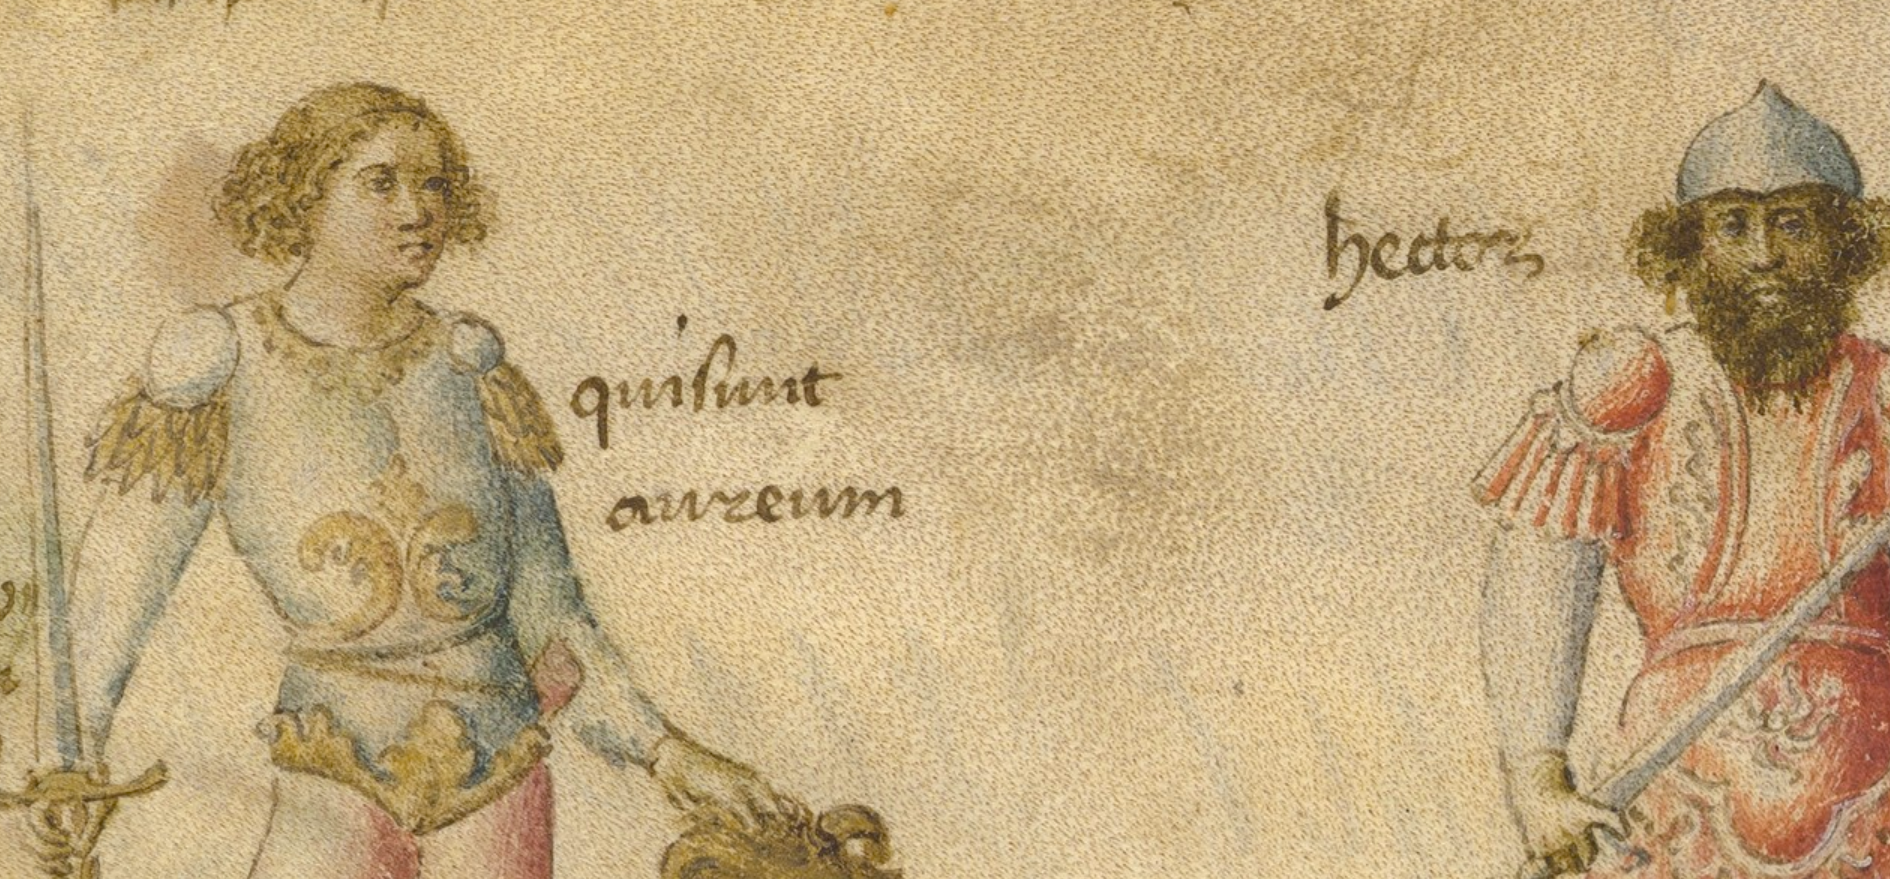 quisunt
aureum
hector